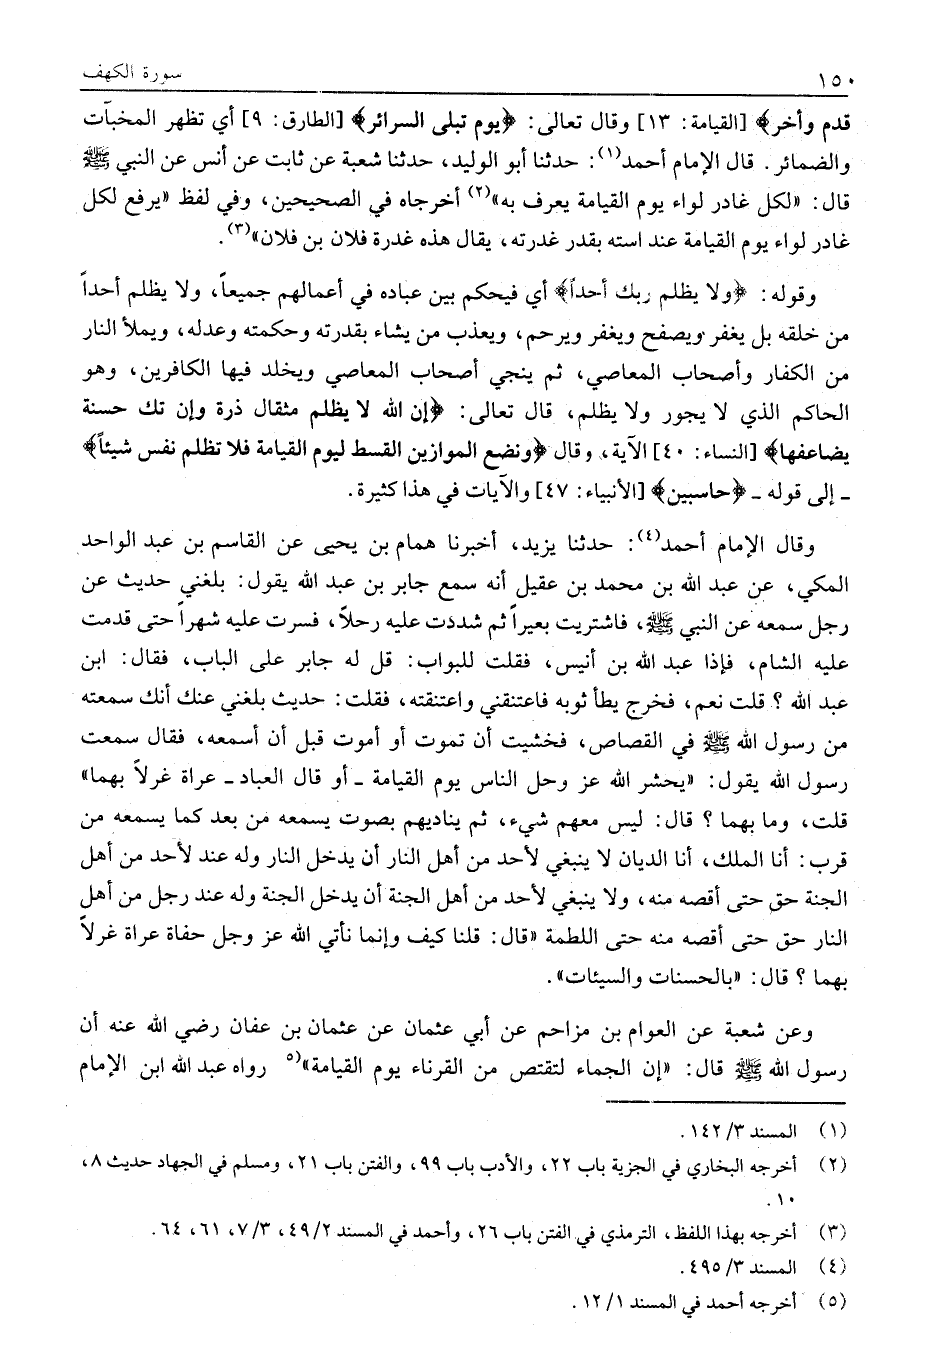 ١٥٠ سورة الكهف
قدم وأخر﴾ [القيامة: ١٣] وقال تعالى: ﴿يوم تبلى السرائر﴾ [الطارق: ٩] أي تظهر المخبآت
والضمائر. قال الإمام أحمد(١): حدثنا أبو الوليد، حدثنا شعبة عن ثابت عن أنس عن النبي ﷺ
قال: «لكل غادر لواء يوم القيامة يعرف به»(٢) أخرجاه في الصحيحين، وفي لفظ «يرفع لكل
غادر لواء يوم القيامة عند استه بقدر غدرته، يقال هذه غدرة فلان بن فلان»(٣).
وقوله: ﴿ولا يظلم ربك أحداً﴾ أي فيحكم بين عباده في أعمالهم جميعاً، ولا يظلم أحداً
من خلقه بل يغفر ويصفح ويغفر ويرحم، ويعذب من يشاء بقدرته وحكمته وعدله، ويملأ النار
من الكفار وأصحاب المعاصي، ثم ينجي أصحاب المعاصي ويخلد فيها الكافرين، وهو
الحاكم الذي لا يجور ولا يظلم، قال تعالى: ﴿إن الله لا يظلم مثقال ذرة وإن تك حسنة
يضاعفها﴾ [النساء: ٤٠] الآية، وقال ﴿ونضع الموازين القسط ليوم القيامة فلا تظلم نفس شيئاً﴾
ـ إلى قوله ـ ﴿حاسبين﴾ [الأنبياء: ٤٧] والآيات في هذا كثيرة.
وقال الإمام أحمد(٤): حدثنا يزيد، أخبرنا همام بن يحيى عن القاسم بن عبد الواحد
المكي، عن عبد الله بن محمد بن عقيل أنه سمع جابر بن عبد الله يقول: بلغني حديث عن
رجل سمعه عن النبي ﷺ، فاشتريت بعيراً ثم شددت عليه رحلاً، فسرت عليه شهراً حتى قدمت
عليه الشام، فإذا عبد الله بن أنيس، فقلت للبواب: قل له جابر على الباب، فقال: ابن
عبد الله؟ قلت نعم، فخرج يطأ ثوبه فاعتنقني واعتنقته، فقلت: حديث بلغني عنك أنك سمعته
من رسول الله ﷺ في القصاص، فخشيت أن تموت أو أموت قبل أن أسمعه، فقال سمعت
رسول الله يقول: «يحشر الله عز وجل الناس يوم القيامة ـ أو قال العباد ـ عراة غرلاً بهما»
قلت، وما بهما؟ قال: ليس معهم شيء، ثم يناديهم بصوت يسمعه من بعد كما يسمعه من
قرب: أنا الملك، أنا الديان لا ينبغي لأحد من أهل النار أن يدخل النار وله عند لأحد من أهل
الجنة حق حتى أقصه منه، ولا ينبغي لأحد من أهل الجنة أن يدخل الجنة وله عند رجل من أهل
النار حق حتى أقصه منه حتى اللطمة «قال: قلنا كيف وإنما نأتي الله عز وجل حفاة عراة غرلاً
بهما؟ قال: «بالحسنات والسيئات».
وعن شعبة عن العوام بن مزاحم عن أبي عثمان عن عثمان بن عفان رضي الله عنه أن
رسول الله ﷺ قال: «إن الجماء لتقتص من القرناء يوم القيامة»(٥ رواه عبد الله ابن الإمام
(١) المسند ٣/ ١٤٢.
(٢) أخرجه البخاري في الجزية باب ٢٢، والأدب باب ٩٩، والفتن باب ٢١، ومسلم في الجهاد حديث ٨،
١٠.
(٣) أخرجه بهذا اللفظ، الترمذي في الفتن باب ٢٦، وأحمد في المسند ٢/ ٤٩، ٣/ ٧، ٦١، ٦٤.
(٤) المسند ٣/ ٤٩٥.
(٥) أخرجه أحمد في المسند ١/ ١٢.